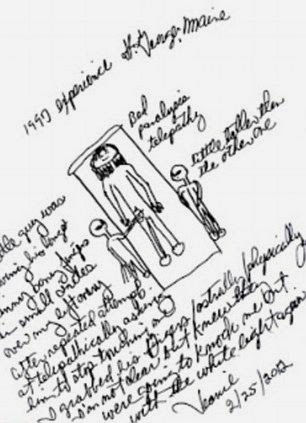 1997 experience St. George, Maine
Bed
paralysis
telepathy
little taller than
the other one
guy was
his long
bony tips
in small circles
over my left
after repeated attempts
at telepathically asking
him to stop touching me
I grabbed his fingers/astrally/physically
I'm not clear but knew they
were going to knock me out
with the white light again
Jeanie
2/25/2012